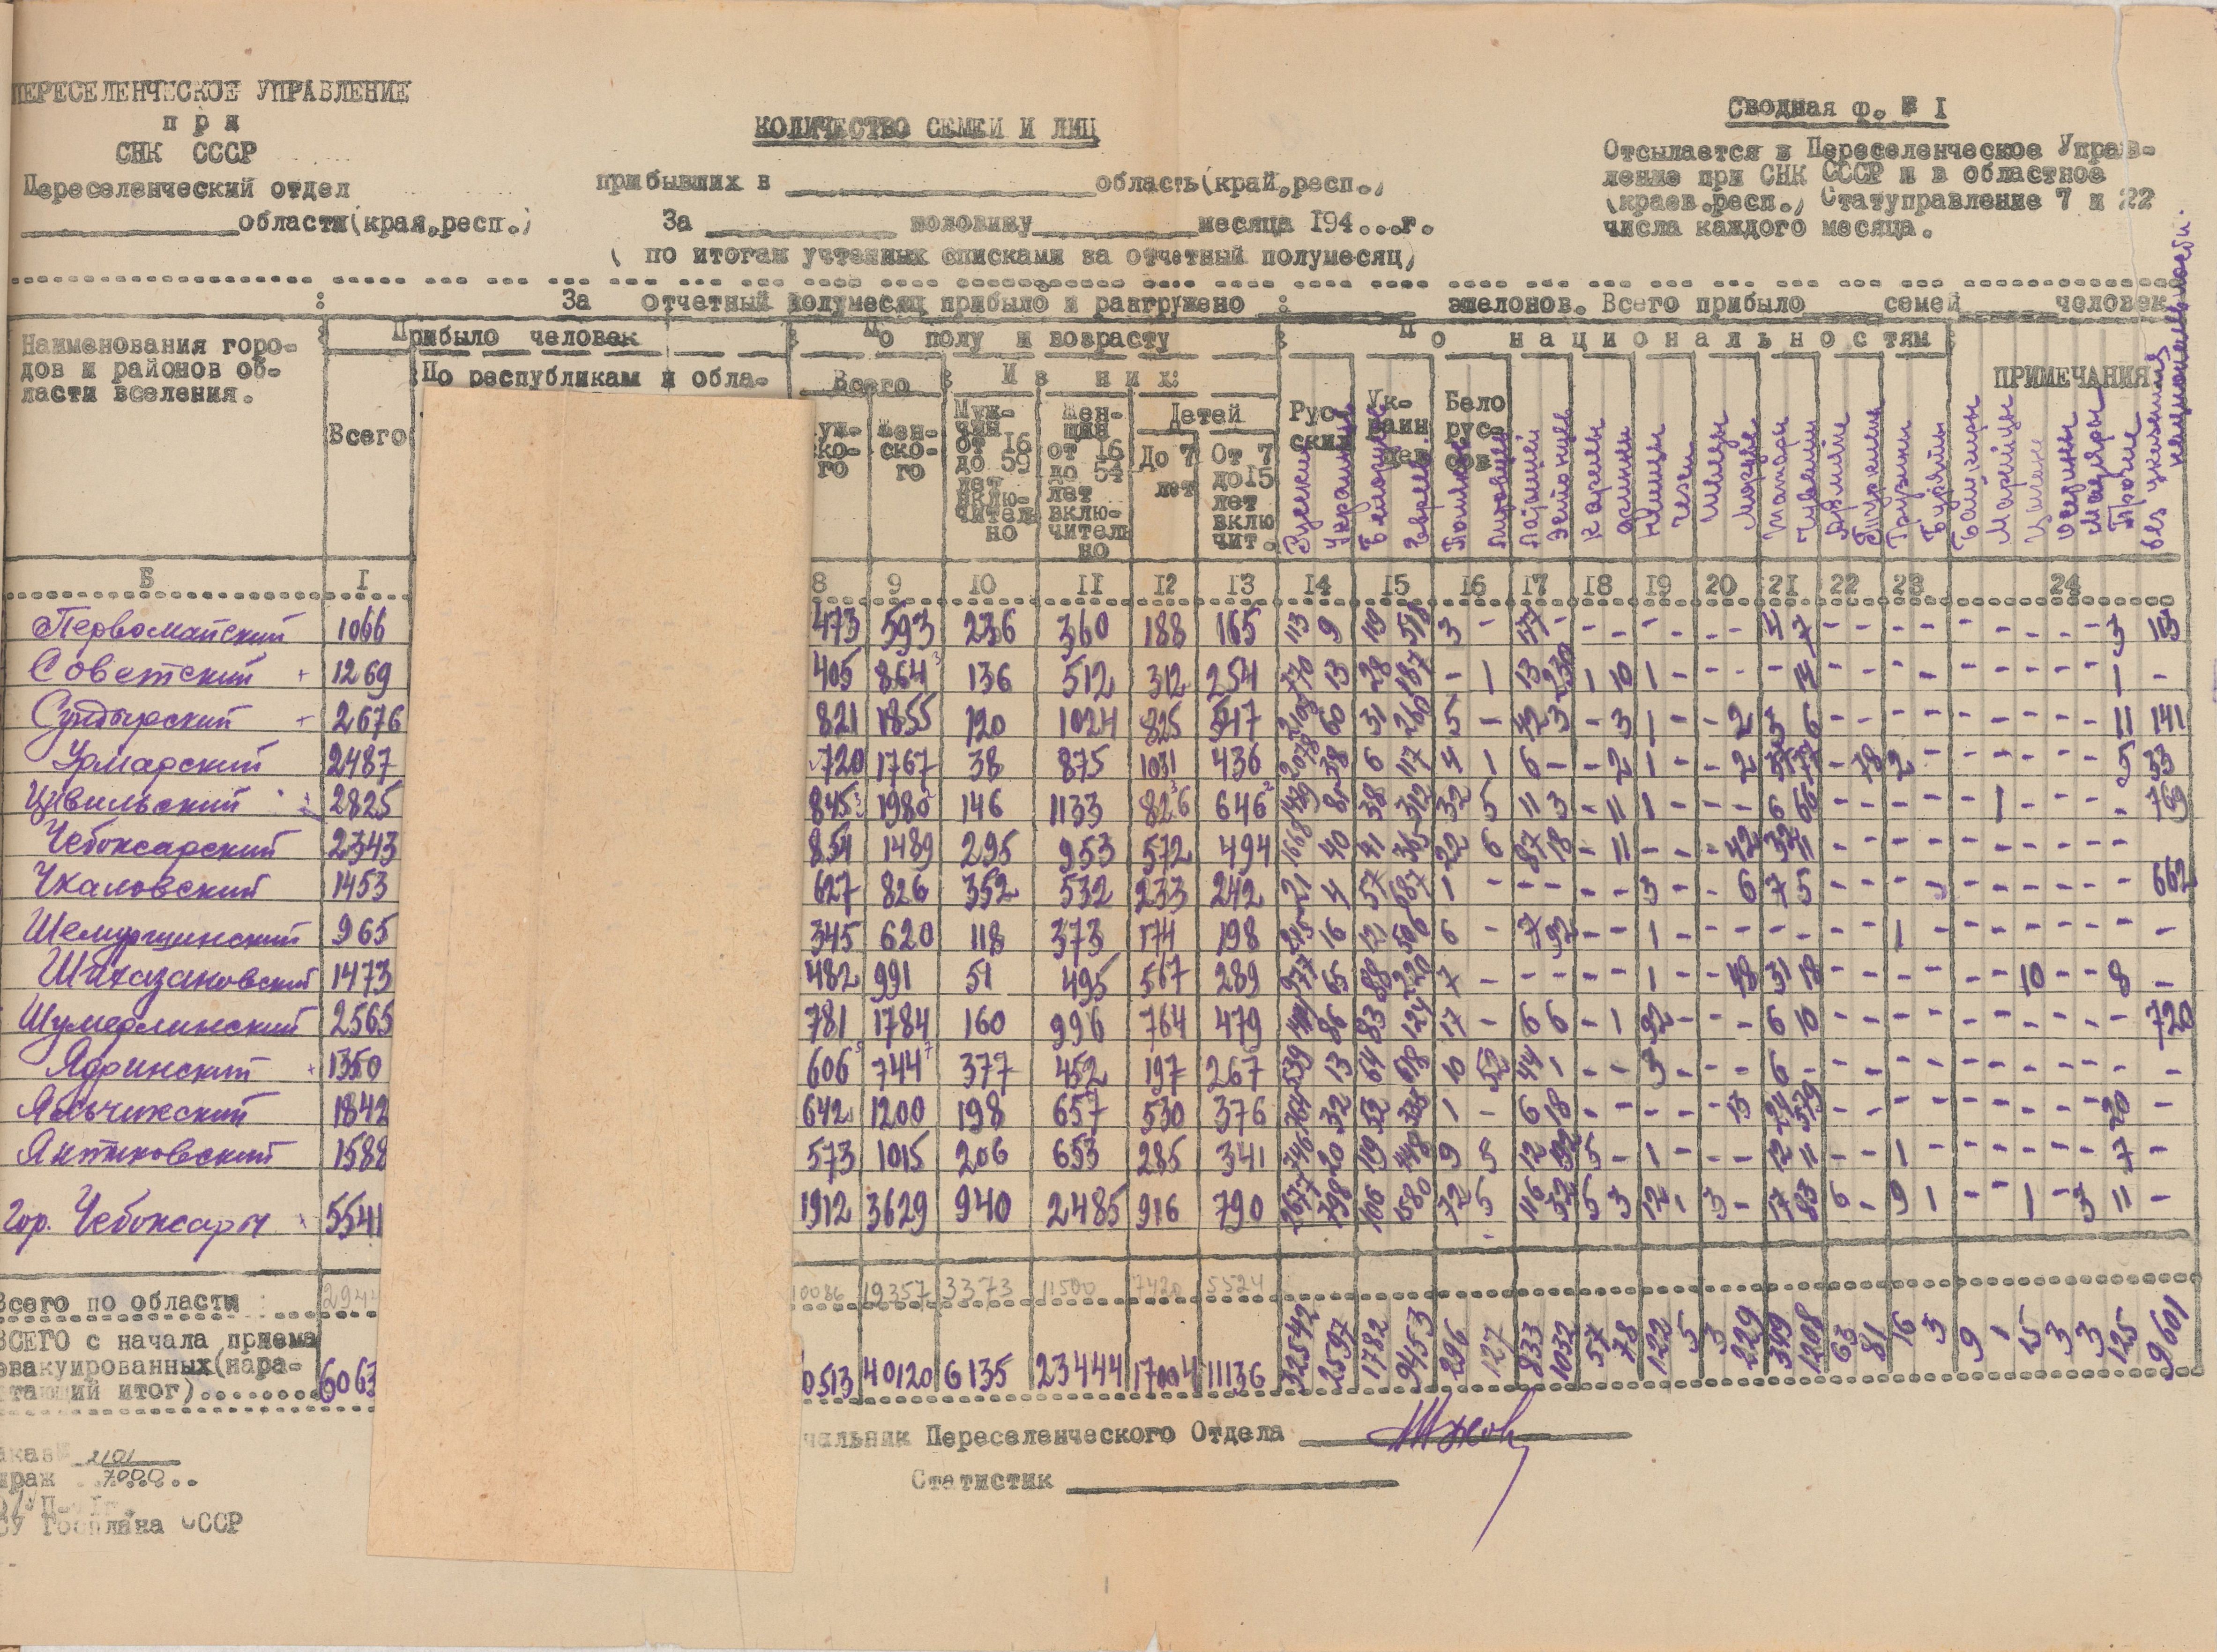 ПЕРЕСЕЛЕНЧЕСКОЕ УПРАВЛЕНИЕ
при
СНК СССР
Переселенческий отдел
области(края,респ.)
КОЛИЧЕСТВО СЕМЕЙ И ЛИЦ
прибывших в область(край,респ.)
За половину месяца 194...г.
( по итогам учтенных списками за отчетный полумесяц)
Сводная ф. № I
Отсылается в Переселенческое Управ-
ление при СНК СССР и в областное
(краев.респ.) Статуправление 7 и 22
числа каждого месяца.
За отчетный полумесяц прибыло и разгружено : эшелонов. Всего прибыло семей человек
Наименования горо-
дов и районов об-
ласти вселения.
Прибыло человек
Всего
По республикам и обла-
По полу и возрасту
Всего
Из них:
уж-
ско-
го
Жен-
ско-
го
Муж-
чин
от 16
до 59
лет
вклю-
читель
но
Жен-
щин
от 16
до 54
лет
вклю-
читель
но
Детей
До 7
лет
От 7
до 15
лет
вклю
чит.
По национальностям
Рус-
ских
Ук-
раин
цев
Бело
рус-
сов
Русские
Украинцы
Белорусы
Евреев
Поляков
Литовцев
Латышей
Эстонцев
Карелы
Финны
Немцы
Чехи
Шведы
Мордва
Татары
Чуваши
Армяне
Туркмены
Грузины
Буряты
Башкиры
Марийцы
Цыгане
Осетины
Мадьяры
Прочие
без указания национальности.
ПРИМЕЧАНИЯ
Б I 8 9 10 11 12 13 14 15 16 17 18 19 20 21 22 23 24
Первомайский 1066 473 593 236 360 188 165 113 9 119 518 3 - 137 - - - - - - - 4 7 - - - - - - - - - 3 153
Советский 1269 405 864 136 512 312 254 770 13 28 187 - 1 13 230 1 10 1 - - - - 14 - - - - - - - - - 1 -
Сундырский 2676 821 1855 120 1024 825 547 2103 60 31 260 5 - 42 3 - 3 1 - - 2 3 6 - - - - - - - - - 11 141
Урмарский 2487 720 1767 38 875 1031 436 2078 38 6 117 4 1 6 - - 2 1 - - 2 - 78 2 - - - - - - - 5 33
Цивильский 2825 845 1980 146 1133 826 646 38 312 32 5 11 3 - 11 1 - - - 6 66 - - - - - 1 - - - - 769
Чебоксарский 2343 854 1489 295 953 572 494 1668 40 41 365 22 6 87 18 - 11 - - - 42 32 11 - - - - - - - - - -
Чкаловский 1453 627 826 352 532 233 242 21 4 57 687 1 - - - - - 3 - - 6 7 5 - - - - - - - - - 662
Шемуршинский 965 345 620 118 373 174 198 16 121 500 6 - 7 92 - - 1 - - - - - - - 1 - - - - - - - -
Шихазановский 1473 482 991 51 495 567 289 977 65 88 220 7 - - - - - 1 - - 48 31 18 - - - - - - 10 - - 8 -
Шумерлинский 2565 781 1784 160 996 764 479 86 83 124 17 - 6 6 - 1 92 - - - 6 10 - - - - - - - - - - 720
Ядринский 1350 606 744 377 452 197 267 539 13 64 618 10 52 44 1 - - 3 - - - 6 - - - - - - - - - - -
Яльчикский 1842 642 1200 198 657 530 376 764 32 52 1 - 6 18 - - - - - 13 211 579 - - - - - - - - - 20 -
Янтиковский 1588 573 1015 206 653 285 341 746 20 119 448 9 5 12 192 5 - 1 - - - 12 11 - - 1 - - - - - - 7 -
Гор. Чебоксары 5541 1912 3629 940 2485 916 790 2677 798 106 1580 72 5 116 52 5 3 12 1 3 - 17 83 6 - 9 1 - - 1 - 3 11 -
Всего по области 294 10086 19357 3373 11500 7420 5524
ВСЕГО с начала приема
эвакуированных(нара-
тающий итог)........ 6063 0513 40120 6135 23444 17004 11136 32542 2597 1782 9453 296 127 833 1032 57 78 122 5 3 229 319 1208 63 81 16 3 9 1 15 3 3 125 9601
чальник Переселенческого Отдела
Статистик
аказ№ 2101
ираж ..7000...
СУ Госплана СССР